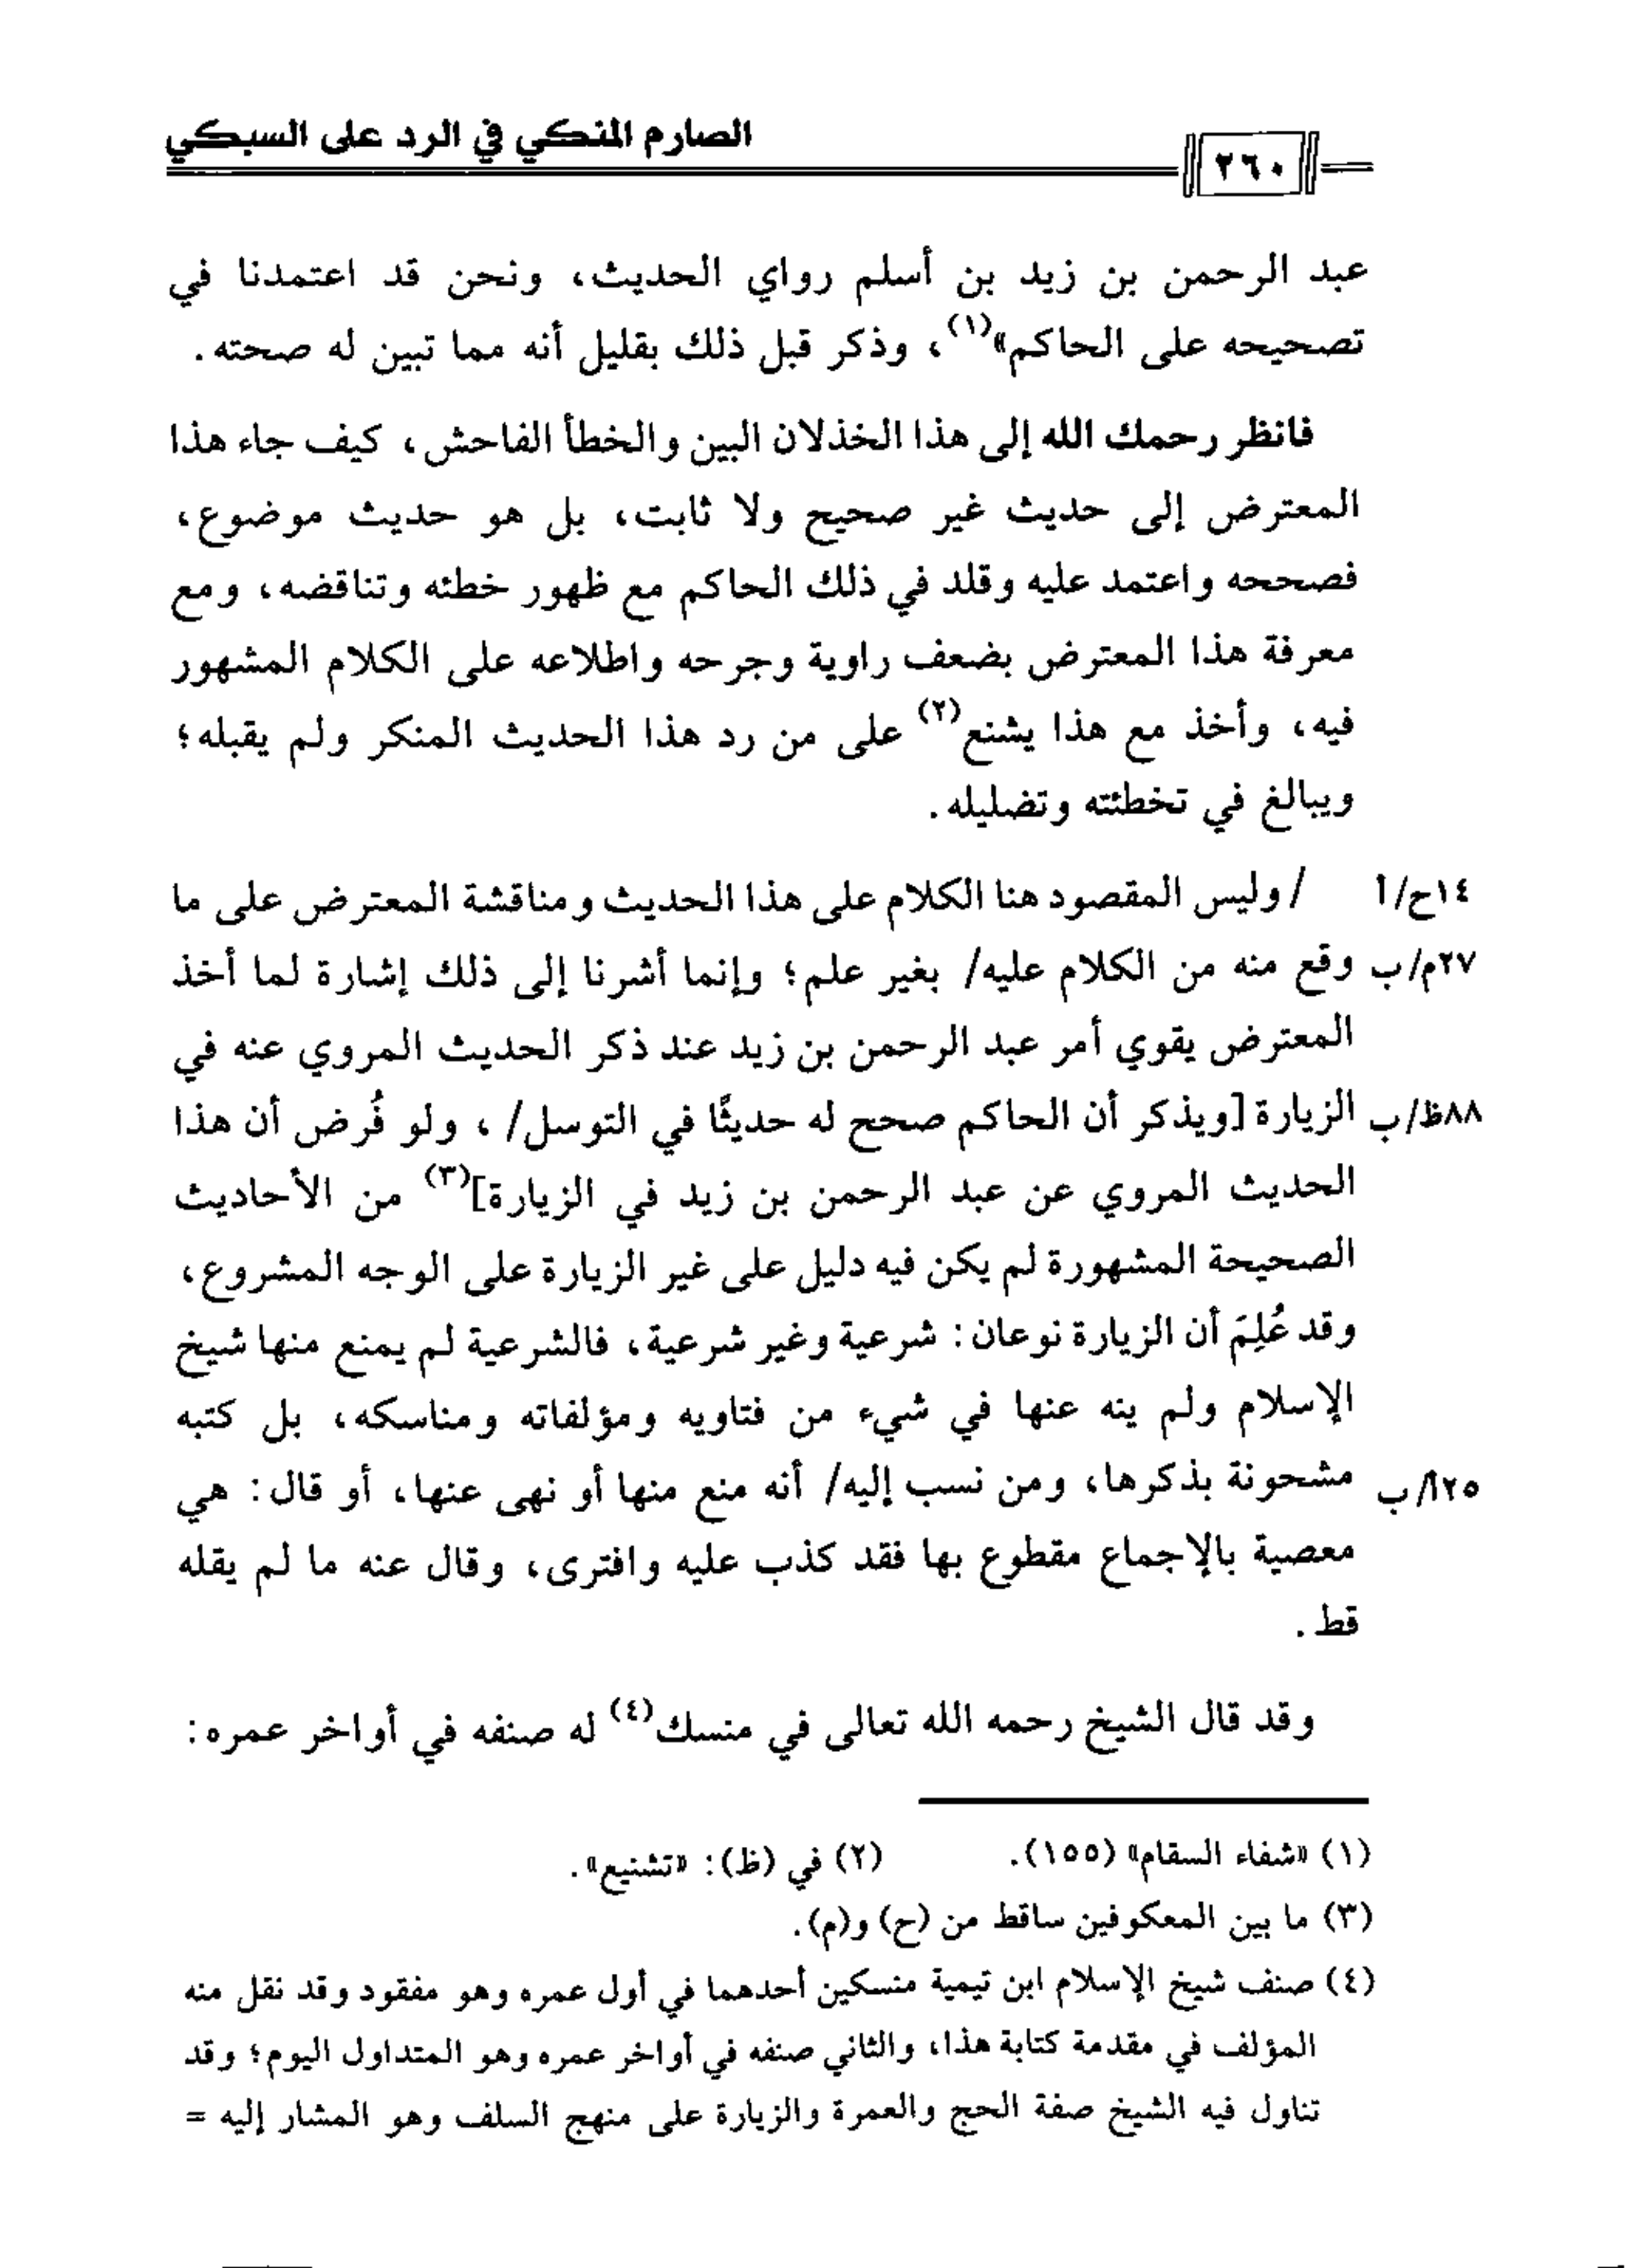 الصارم المنكي في الرد على السبكي
٢٦٠
عبد الرحمن بن زيد بن أسلم رواي الحديث، ونحن قد اعتمدنا في
تصحيحه على الحاكم»(١)، وذكر قبل ذلك بقليل أنه مما تبين له صحته.
فانظر رحمك الله إلى هذا الخذلان البين والخطأ الفاحش، كيف جاء هذا
المعترض إلى حديث غير صحيح ولا ثابت، بل هو حديث موضوع،
فصححه واعتمد عليه وقلد في ذلك الحاكم مع ظهور خطئه وتناقضه، ومع
معرفة هذا المعترض بضعف راوية وجرحه واطلاعه على الكلام المشهور
فيه، وأخذ مع هذا يشنع(٢) على من رد هذا الحديث المنكر ولم يقبله؛
ويبالغ في تخطئته وتضليله.
١٤ح/أ / وليس المقصود هنا الكلام على هذا الحديث ومناقشة المعترض على ما
٢٧م/ب وقع منه من الكلام عليه/ بغير علم؛ وإنما أشرنا إلى ذلك إشارة لما أخذ
المعترض يقوي أمر عبد الرحمن بن زيد عند ذكر الحديث المروي عنه في
٨٨ظ/ب الزيارة [ويذكر أن الحاكم صحح له حديثًا في التوسل/، ولو فُرض أن هذا
الحديث المروي عن عبد الرحمن بن زيد في الزيارة](٣) من الأحاديث
الصحيحة المشهورة لم يكن فيه دليل على غير الزيارة على الوجه المشروع،
وقد عُلِمَ أن الزيارة نوعان: شرعية وغير شرعية، فالشرعية لم يمنع منها شيخ
الإسلام ولم ينه عنها في شيء من فتاويه ومؤلفاته ومناسكه، بل كتبه
٢٥أ/ب مشحونة بذكرها، ومن نسب إليه/ أنه منع منها أو نهى عنها، أو قال: هي
معصية بالإجماع مقطوع بها فقد كذب عليه وافترى، وقال عنه ما لم يقله
قط.
وقد قال الشيخ رحمه الله تعالى في منسك(٤) له صنفه في أواخر عمره:
(١) «شفاء السقام» (١٥٥). (٢) في (ظ): «تشنيع».
(٣) ما بين المعكوفين ساقط من (ح) و(م).
(٤) صنف شيخ الإسلام ابن تيمية منسكين أحدهما في أول عمره وهو مفقود وقد نقل منه
المؤلف في مقدمة كتابة هذا، والثاني صنفه في أواخر عمره وهو المتداول اليوم؛ وقد
تناول فيه الشيخ صفة الحج والعمرة والزيارة على منهج السلف وهو المشار إليه =